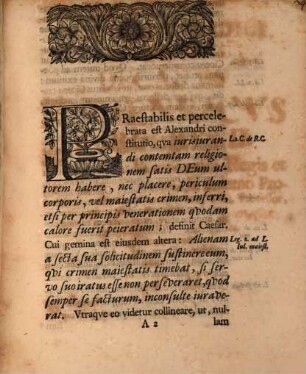 PRaestabilis et percele-
brata est Alexandri con-
stitutio, qva iurisiuran- L.2.C. de R.C.
di contemtam religio-
nem satis DEum ul-
torem habere, nec placere, periculum
corporis, vel maiestatis crimen, inferri,
etsi per principis venerationem qvodam
calore fuerit peieratum; definit Caesar.
Cui gemina est eiusdem altera: Alienam Leg. 2. ad L.
a secta sua solicitudinem sustineres eum, Iul. maiest.
qvi crimen maiestatis timebat, si ser-
vo suo iratus esse non perseveraret, qvod
semper se facturum, inconsulte iurave-
rat. Vtraqve eo videtur collineare, ut, nul-
A 2 lam